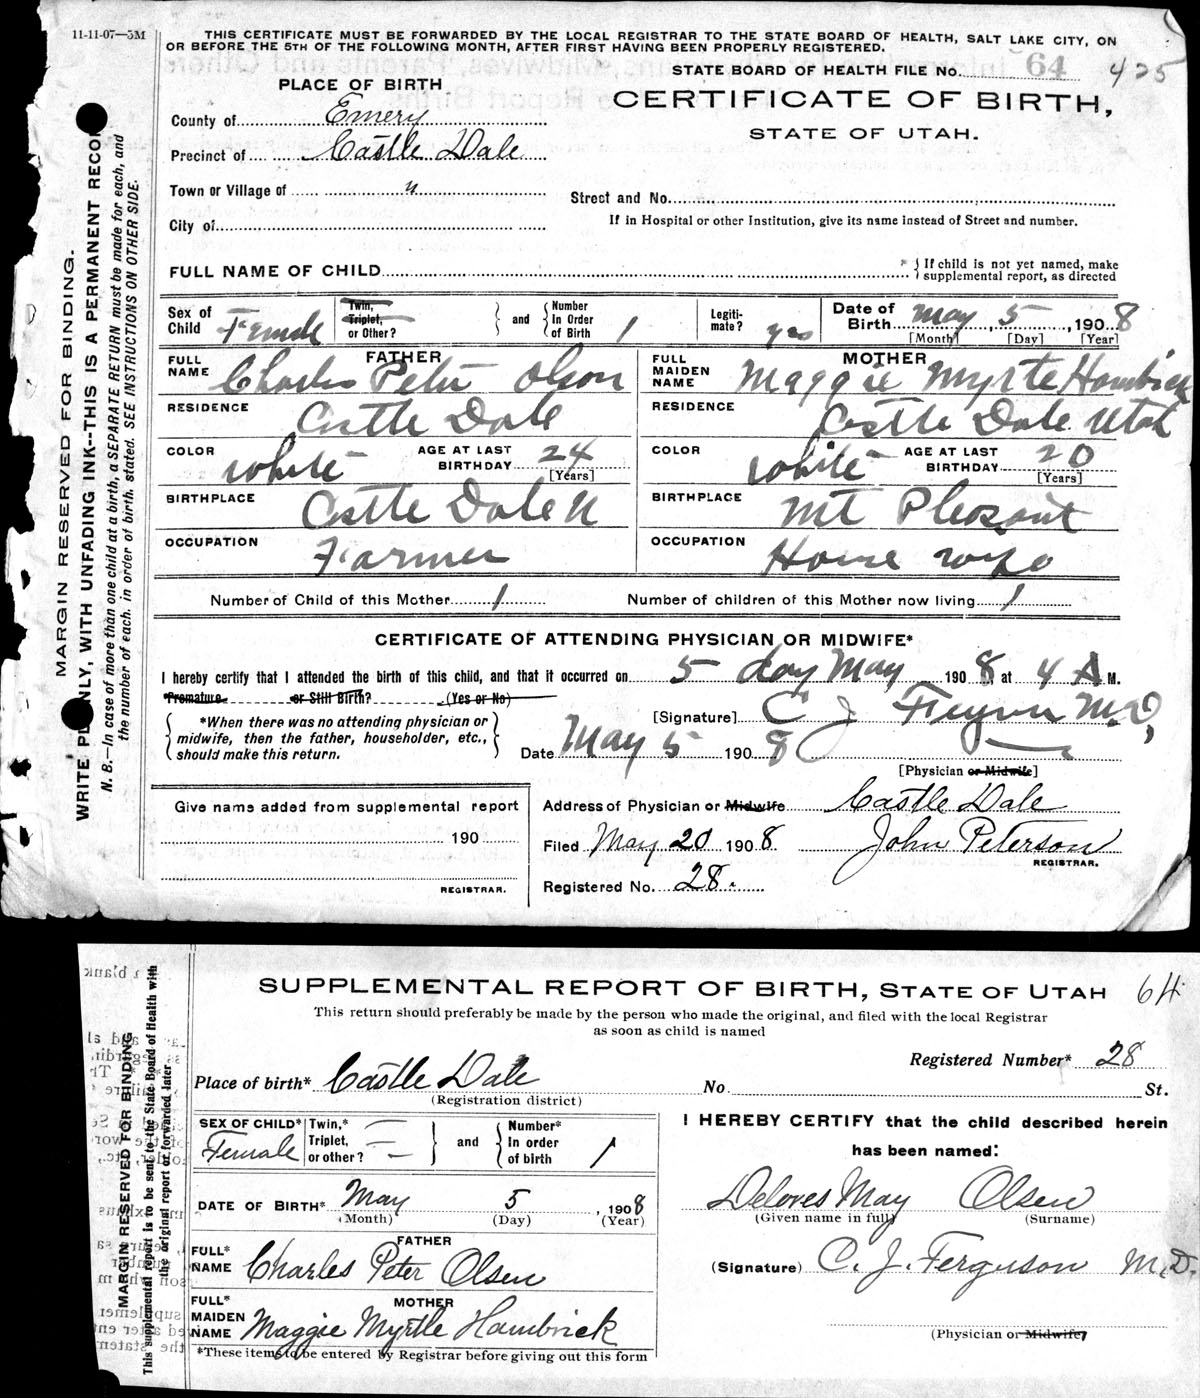 11-11-07—5M
THIS CERTIFICATE MUST BE FORWARDED BY THE LOCAL REGISTRAR TO THE STATE BOARD OF HEALTH, SALT LAKE CITY, ON
OR BEFORE THE 5TH OF THE FOLLOWING MONTH, AFTER FIRST HAVING BEEN PROPERLY REGISTERED.
STATE BOARD OF HEALTH FILE No. 64 425
PLACE OF BIRTH
CERTIFICATE OF BIRTH,
STATE OF UTAH.
County of Emery
Precinct of Castle Dale
Town or Village of "
Street and No.
City of
If in Hospital or other Institution, give its name instead of Street and number.
FULL NAME OF CHILD * { If child is not yet named, make supplemental report, as directed
Sex of Child Female Twin, Triplet, or Other? and Number In Order of Birth 1 Legiti-mate? yes Date of Birth May 5, 1908
[Month] [Day] [Year]
FATHER MOTHER
FULL NAME Charles Peter Olson FULL MAIDEN NAME Maggie Myrtle Hambrick
RESIDENCE Castle Dale RESIDENCE Castle Dale Utah
COLOR White AGE AT LAST BIRTHDAY 24 [Years] COLOR White AGE AT LAST BIRTHDAY 20 [Years]
BIRTHPLACE Castle Dale U BIRTHPLACE Mt Pleasant
OCCUPATION Farmer OCCUPATION House wife
Number of Child of this Mother 1 Number of children of this Mother now living 1
CERTIFICATE OF ATTENDING PHYSICIAN OR MIDWIFE*
I hereby certify that I attended the birth of this child, and that it occurred on 5 day May 1908 at 4 A M.
Premature or Still Birth? (Yes or No)
{ *When there was no attending physician or midwife, then the father, householder, etc., should make this return. }
[Signature] C J M.D,
Date May 5 1908
[Physician or Midwife]
Give name added from supplemental report
190
REGISTRAR.
Address of Physician or Midwife Castle Dale
Filed May 20 1908 John Peterson
REGISTRAR.
Registered No. 28.
MARGIN RESERVED FOR BINDING.
WRITE PLAINLY, WITH UNFADING INK--THIS IS A PERMANENT RECORD
N. B.—In case of more than one child at a birth, a SEPARATE RETURN must be made for each, and
the number of each, in order of birth, stated. SEE INSTRUCTIONS ON OTHER SIDE.
SUPPLEMENTAL REPORT OF BIRTH, STATE OF UTAH 64
This return should preferably be made by the person who made the original, and filed with the local Registrar
as soon as child is named
Registered Number* 28
Place of birth* Castle Dale No. St.
(Registration district)
SEX OF CHILD* Female Twin,* Triplet, or other? — — and Number* In order of birth 1
DATE OF BIRTH* May 5, 1908
(Month) (Day) (Year)
FATHER
FULL* NAME Charles Peter Olsen
MOTHER
FULL* MAIDEN NAME Maggie Myrtle Hambrick
*These items to be entered by Registrar before giving out this form
I HEREBY CERTIFY that the child described herein
has been named:
Delores May Olsen
(Given name in full) (Surname)
(Signature) C. J. Ferguson M.D.
(Physician or Midwife)
MARGIN RESERVED FOR BINDING
This supplemental report is to be sent to the State Board of Health with
the original report or forwarded later